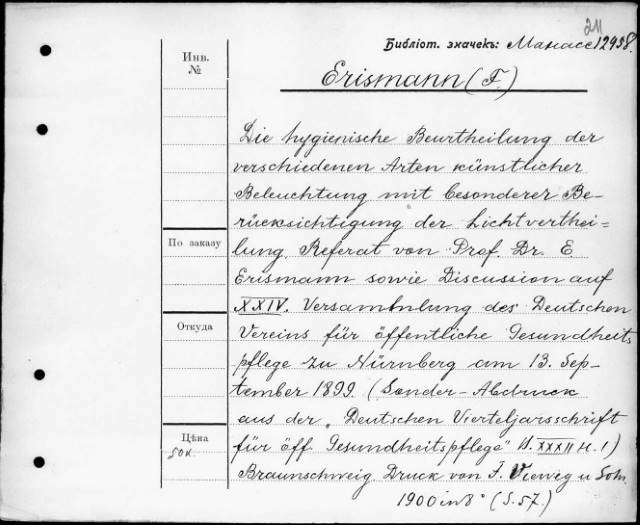 211
Библіот. значекъ: Манасс 12958.
Инв.
№
Erismann (F.)
Die hygienische Beurtheilung der
verschiedenen Arten künstlicher
Beleuchtung mit besonderer Be-
rücksichtigung der Lichtverthei-
lung. Referat von Prof. Dr. E
Erismann sowie Discussion auf
XXIV. Versammlung des Deutschen
Vereins für öffentliche Gesundheits
pflege zu Nürnberg am 13. Sep-
tember 1899. (Sonder-Abdruck
aus der „Deutschen Vierteljarsschrift
für öff. Gesundheitspflege" Bd. XXXII H. 1)
Braunschweig. Druck von F. Vieweg u Sohn.
1900 in 8° (S. 57.)
По заказу
Откуда
Цѣна
50к.